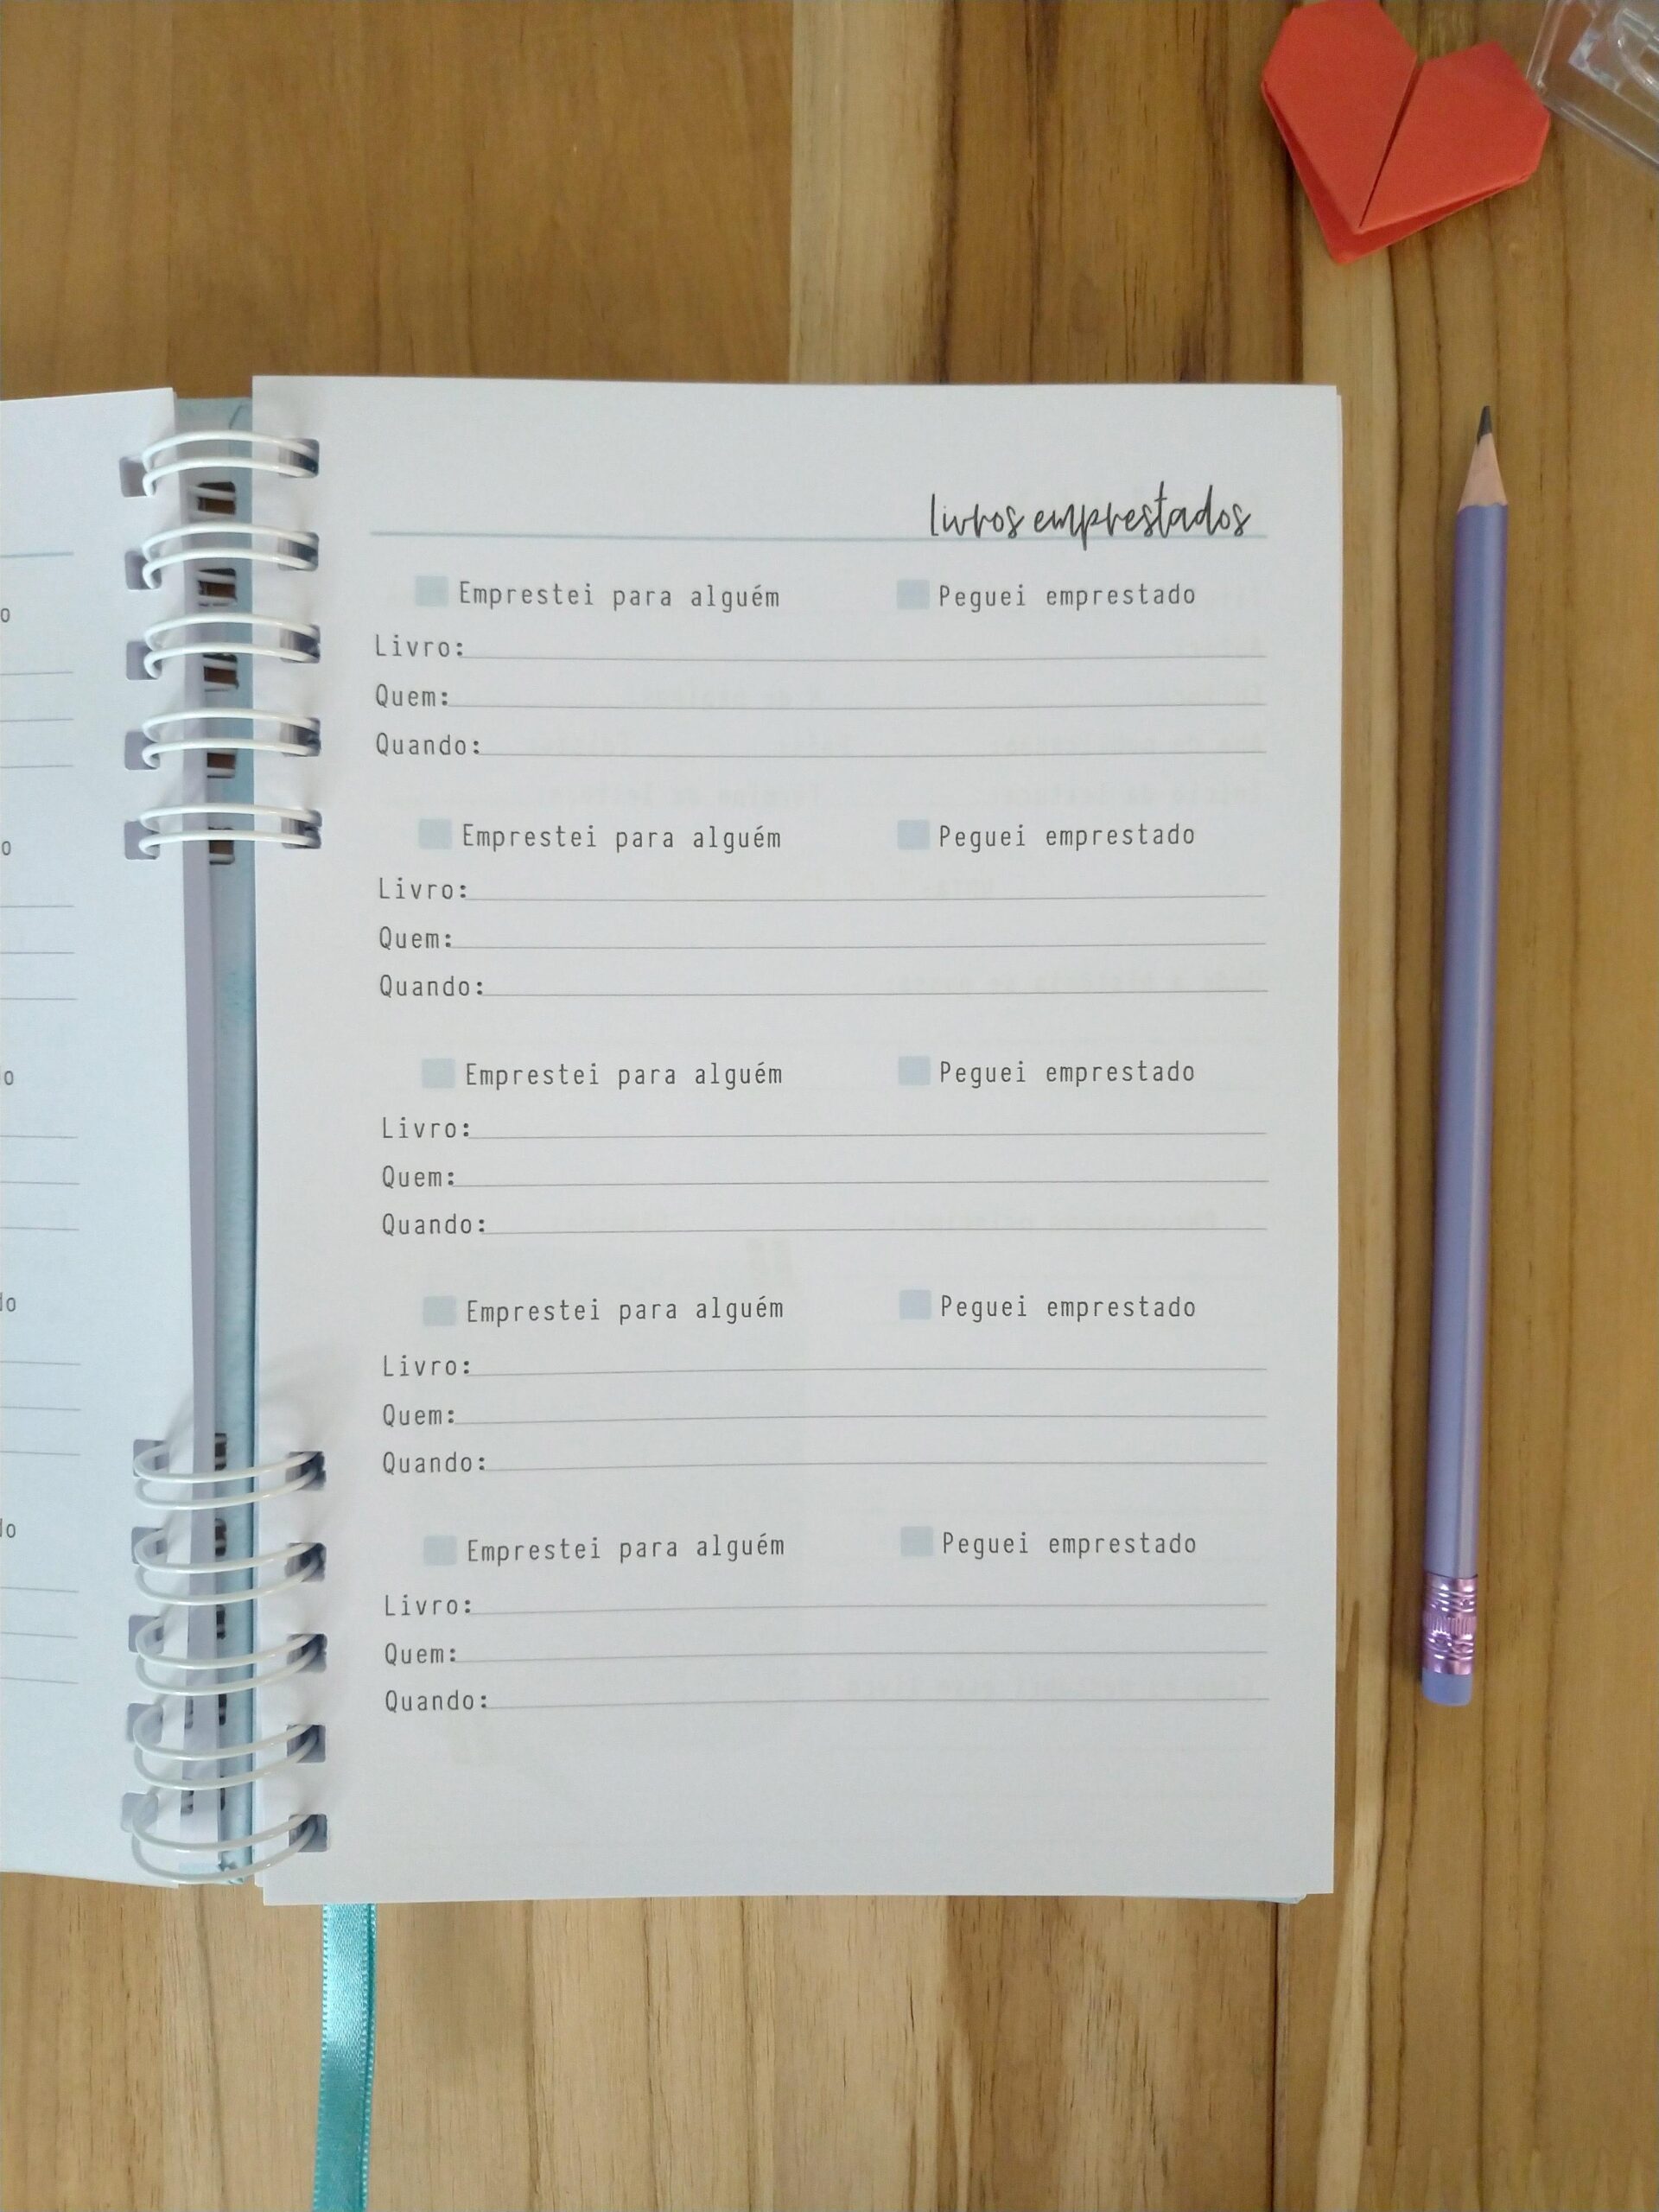 livros emprestados
Emprestei para alguém Peguei emprestado
Livro:
Quem:
Quando:
Emprestei para alguém Peguei emprestado
Livro:
Quem:
Quando:
Emprestei para alguém Peguei emprestado
Livro:
Quem:
Quando:
Emprestei para alguém Peguei emprestado
Livro:
Quem:
Quando:
Emprestei para alguém Peguei emprestado
Livro:
Quem:
Quando: